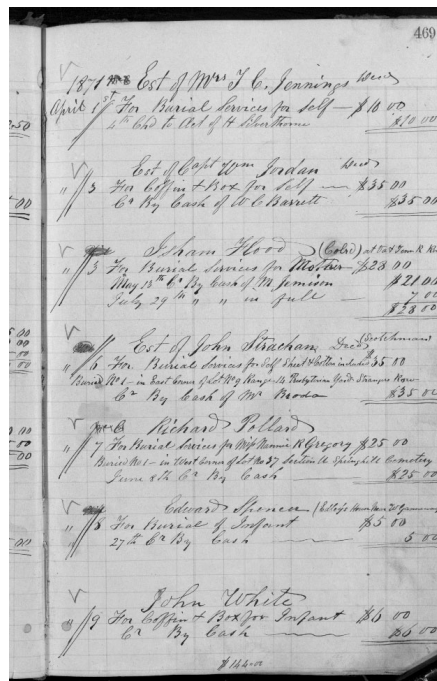 469
1871 Est of Mrs T. C. Jennings Decd
April 1st For Burial Services for Self — $10 00
Chd to Act of H Silverthorn $10 00
Est of Capt Wm Jordan Decd
" 3 For Coffin & Box for Self — $35 00
Cr By Cash of W C Barrett $35 00
Isham Flood (Colrd) at Va & Tenn R
" 3 For Burial Services for Mother $28 00
May 13th Cr By Cash of M Jemison $21 00
July 29th " " in full — 7 00
$28 00
Est of John Strachan Decd Scotchman
" 6 For Burial Services for Self Sheet & Cotton included $35 00
Buried No 1 — in East Corner of Lot No 9 Range 14 Presbyterian Yard Strangers Row
Cr By Cash of Mr $35 00
Richard Pollard
" 7 For Burial Services for Wife Nannie R Gregory $25 00
Buried No 1 — in West Corner of Lot No 37 Section Springhill Cemetery
June 8th Cr By Cash — $25 00
Edward Spencer
" 8 For Burial of Infant $5 00
27th Cr By Cash — 5 00
John White
" 9 For Coffin & Box for Infant $6 00
Cr By Cash — $6 00
$144.00